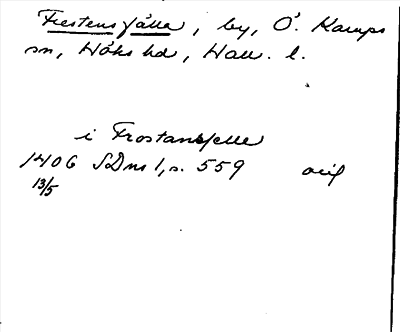 Frestensfälle, by, Ö. Karups
sn, Höks hd, Hall. l.
i Frostansfelle
1406 SDns 1, s. 559 orig
13/5